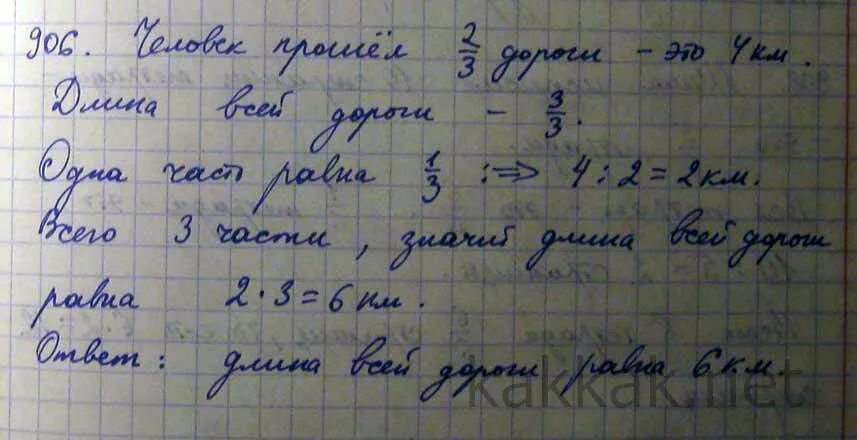 906. Человек прошёл 2/3 дороги – это 4 км.
Длина всей дороги – 3/3.
Одна часть равна 1/3 :⇒ 4 : 2 = 2 км.
Всего 3 части, значит длина всей дороги
равна 2 · 3 = 6 км.
Ответ: длина всей дороги равна 6 км.
kakkak.net